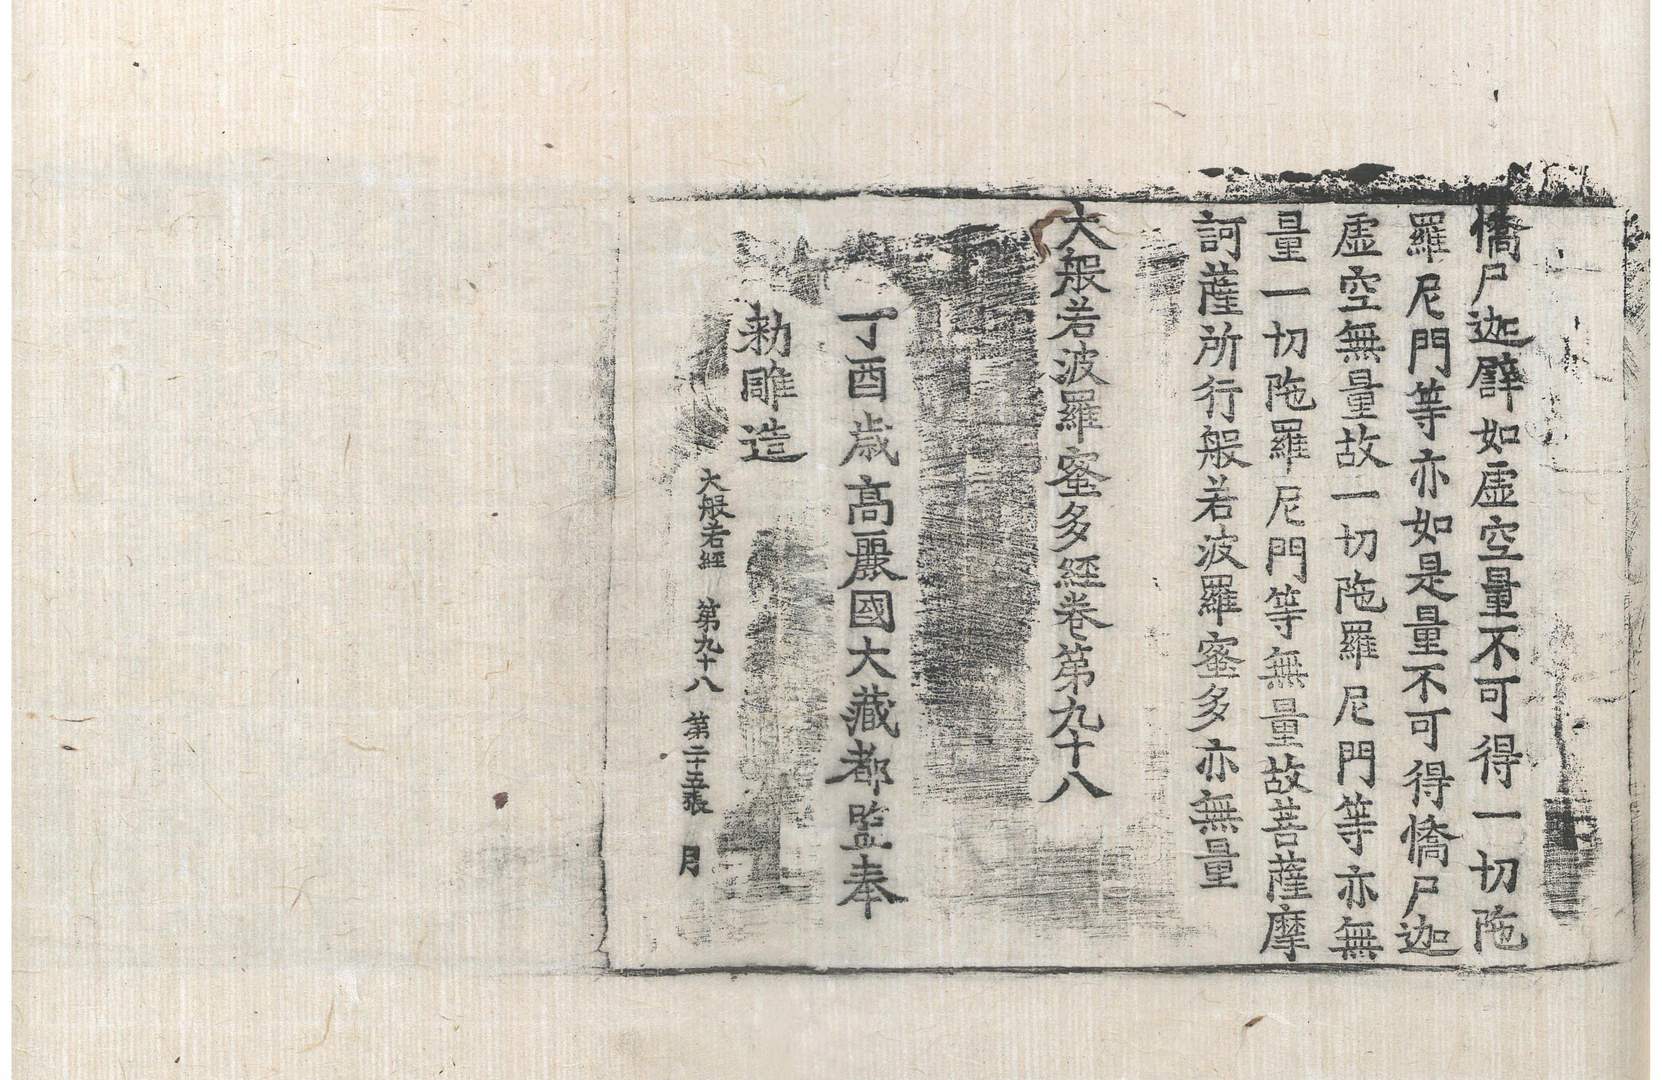 憍尸迦譬如虛空量不可得一切陁
羅尼門等亦如是量不可得憍尸迦
虛空無量故一切陁羅尼門等亦無
量一切陁羅尼門等無量故菩薩摩
訶薩所行般若波羅蜜多亦無量
大般若波羅蜜多經卷第九十八
丁酉歲高麗國大藏都監奉
勅雕造
大般若經 第九十八 第二十五張 月